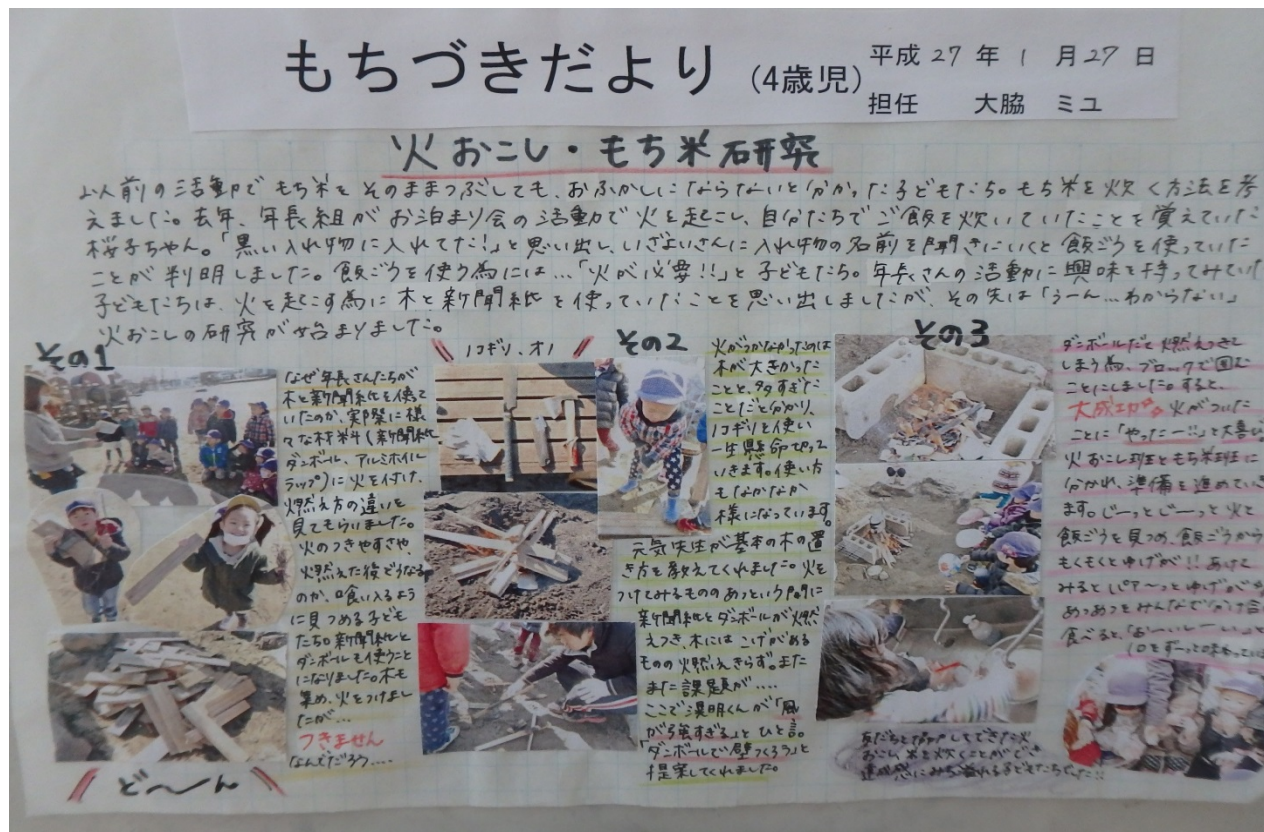 もちづきだより (4歳児)
平成 27 年 1 月 27 日
担任 大脇 ミユ
火おこし・もち米研究
以前の活動でもち米をそのままつぶしても、おふかしにならないと分かった子どもたち。もち米を炊く方法を考
えました。去年、年長組がお泊まり会の活動で火を起こし、自分たちでご飯を炊いていたことを覚えていた
桜子ちゃん。「黒い入れ物に入れてた!」と思い出し、いざよいさんに入れ物の名前を聞きにいくと飯ごうを使っていた
ことが判明しました。飯ごうを使う為には…「火が必要!!」と子どもたち。年長さんの活動に興味を持ってみていた
子どもたちは、火を起こす為に木と新聞紙を使っていたことを思い出しましたが、その先は「うーん…わからない」
火おこしの研究が始まりました。
その1
なぜ年長さんたちが
木と新聞紙を使って
いたのか、実際に様
々な材料(新聞紙
ダンボール、アルミホイル
ラップ)に火を付け、
燃え方の違いを
見てもらいました。
火のつきやすさや、
燃えた後どうなる
のか、喰い入るよう
に見つめる子ども
たち。新聞紙と
ダンボールも使うこと
になりました。木も
集め、火をつけまし
たが…
つきません
なんでだろう….
ど〜〜ん
ノコギリ、オノ
その2
火がつかなかったのは
木が大きかった
ことと、多すぎた
ことだと分かり、
ノコギリを使い
一生懸命切って
いきます。使い方
もなかなか
様になっています。
元気先生が基本の木の置
き方を教えてくれました。火を
つけてみるもののあっという間に
新聞紙とダンボールが燃
えつき、木にはこげがある
ものの燃えきらず。また
また課題が….
ここで滉明くんが「風
が強すぎる」とひと言。
「ダンボールで壁つくろう」と
提案してくれました。
その3
ダンボールだと燃えつきて
しまう為、ブロックで囲む
ことにしました。すると、
大成功 火がついた
ことに「やったー!!」と大喜び。
火おこし班ともち米班に
分かれ、準備を進めていき
ます。じーっとじーっと火と
飯ごうを見つめ、飯ごうから
もくもくとゆげが!!あけて
みるとパァ〜っとゆげが
あつあつをみんなで分け合
食べると、「おーいしーい」と
友だちと
おこし、米を炊くことができ
達成感にみち溢れる子どもたちでした!!